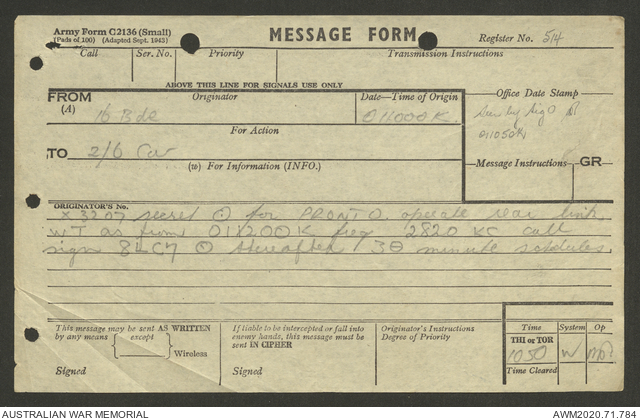 Army Form C2136 (Small)
(Pads of 100) (Adapted Sept. 1943)
MESSAGE FORM
Register No. 514
Call
Ser. No.
Priority
Transmission Instructions
ABOVE THIS LINE FOR SIGNALS USE ONLY
FROM
(A)
Originator
16 Bde
Date—Time of Origin
011000K
Office Date Stamp
Sig O
011050K
For Action
TO
2/6 Cav
(w) For Information (INFO.)
Message Instructions
GR
ORIGINATOR'S No.
X3207 secret O for PRONTO operate rear link
WT as from 011200K freq 2820 KC call
sign 8LC7 O thereafter 30 minute schedules
This message may be sent AS WRITTEN
by any means
except
Wireless
Signed
If liable to be intercepted or fall into
enemy hands, this message must be
sent IN CIPHER
Signed
Originator's Instructions
Degree of Priority
Time
System
Op
THI or TOR
1050
W
Time Cleared
AUSTRALIAN WAR MEMORIAL
AWM2020.71.784